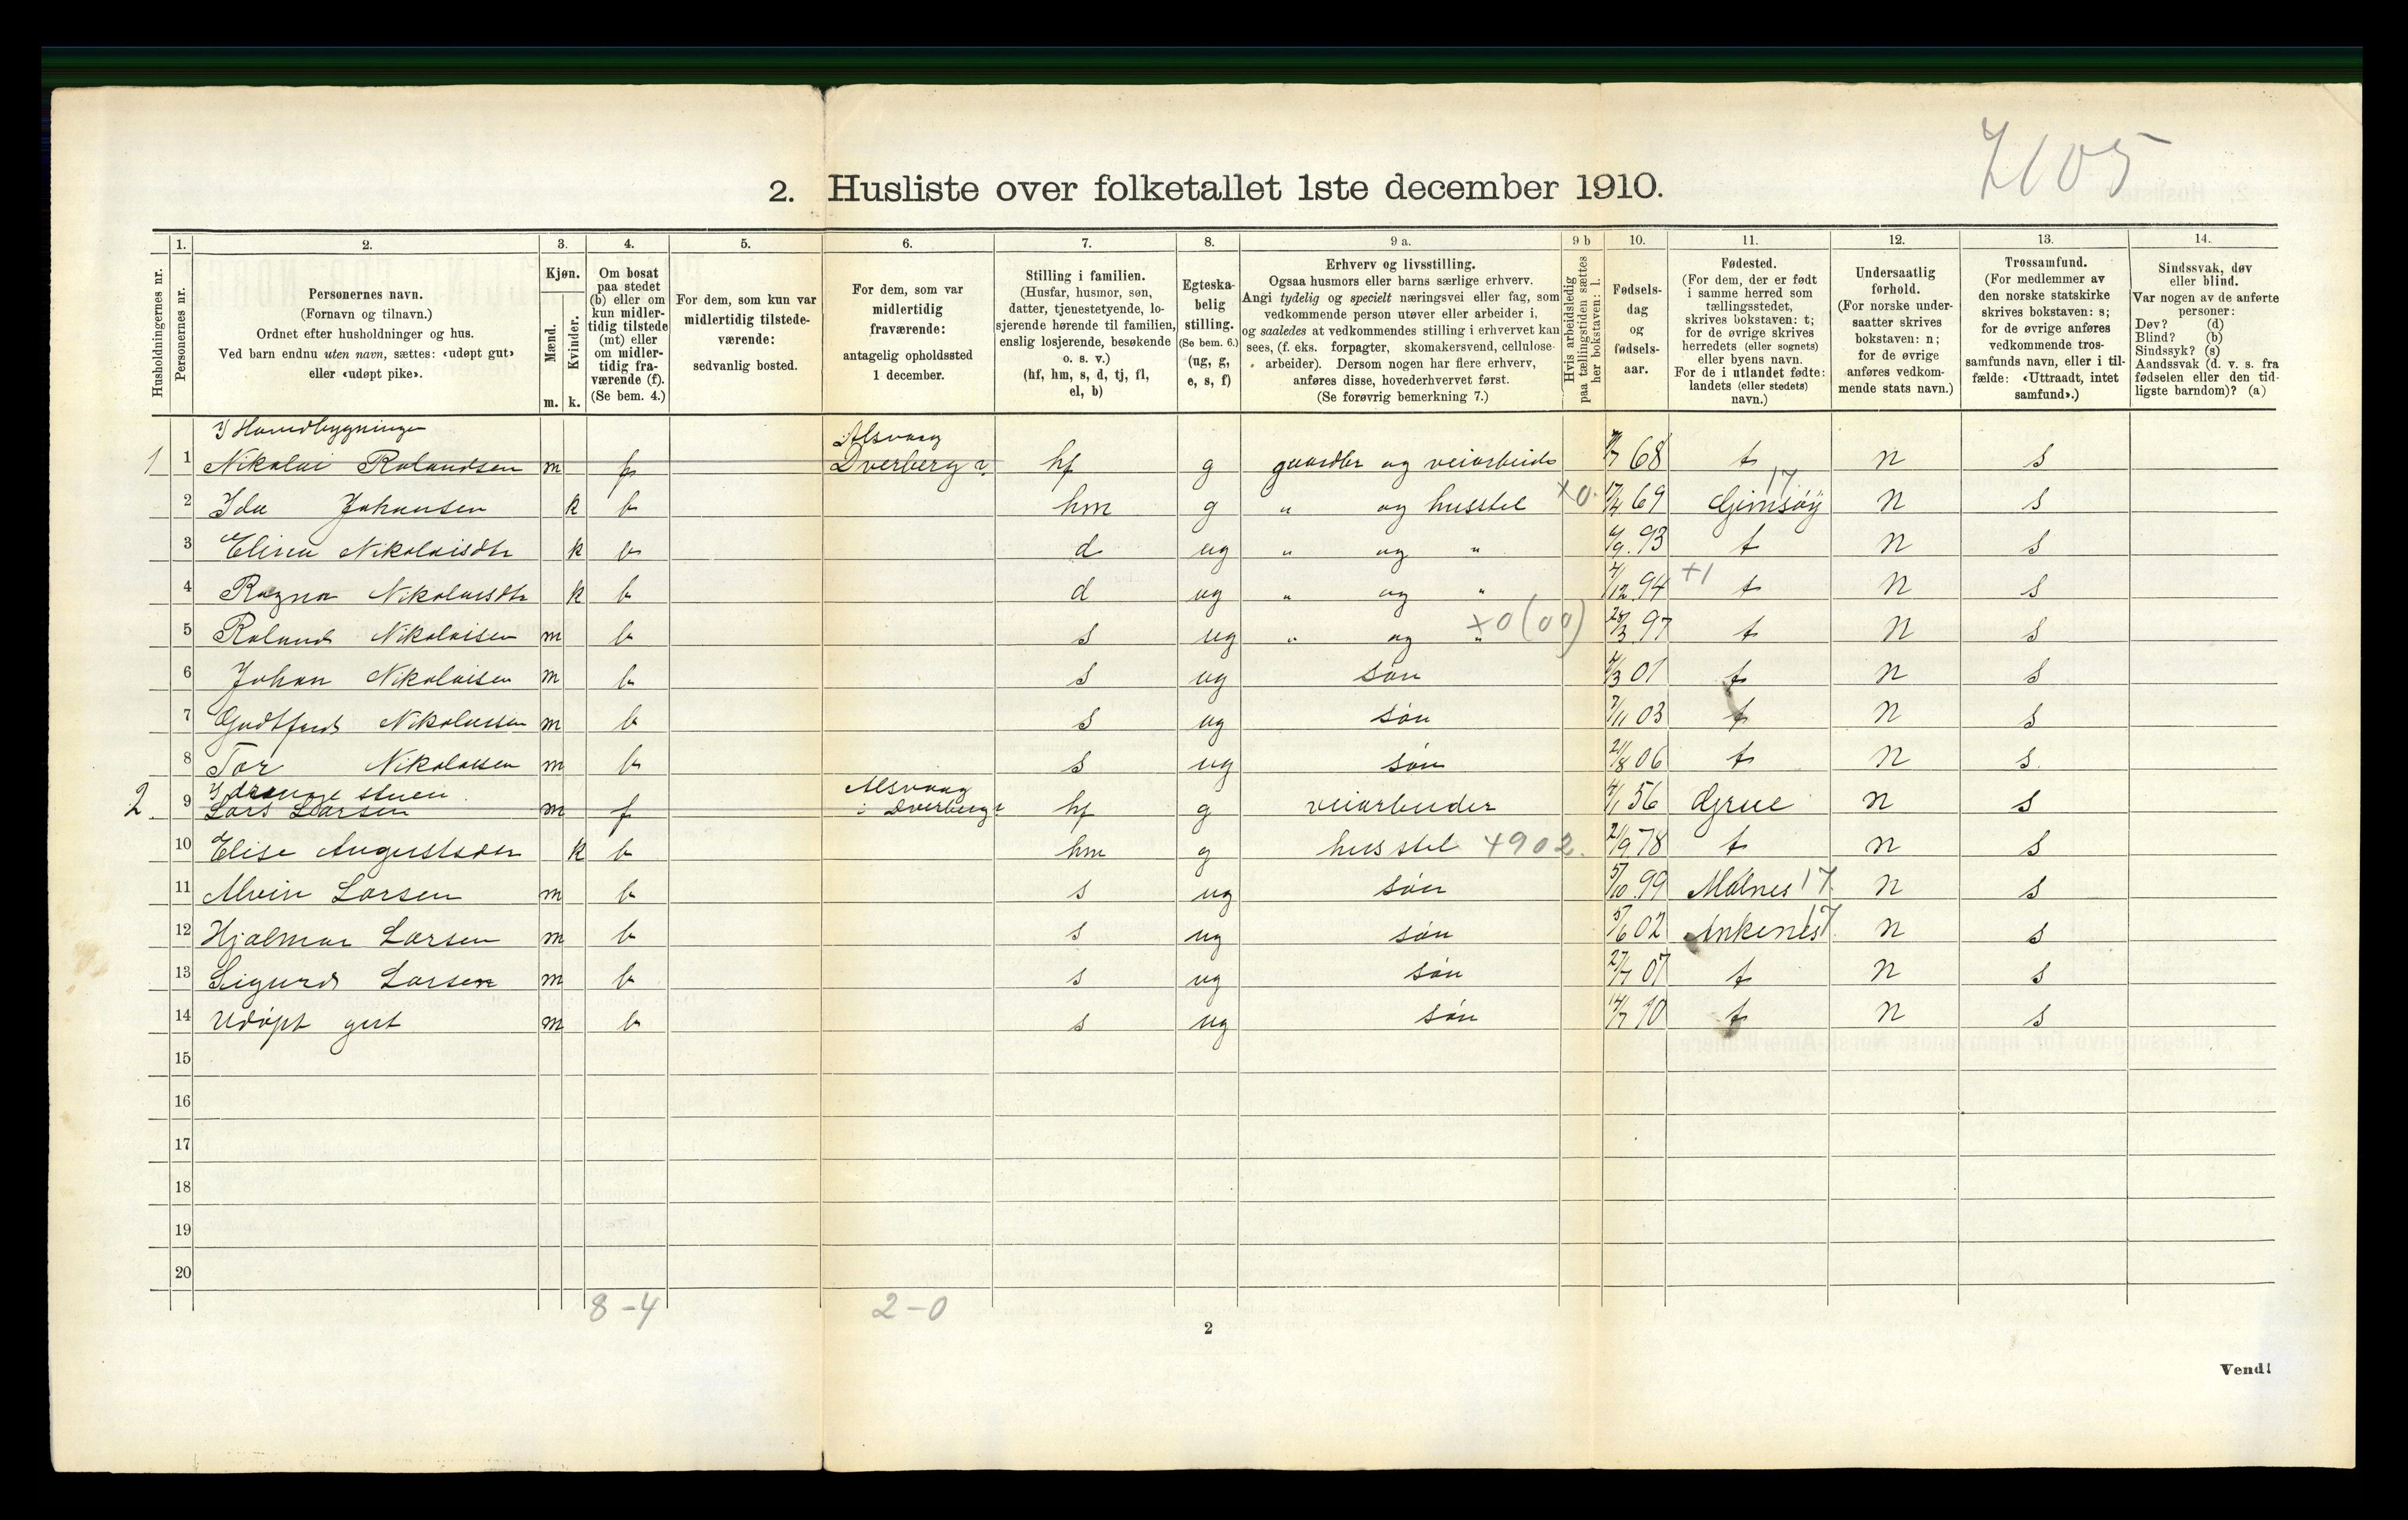 7105
2. Husliste over folketallet 1ste december 1910.
1. 2. 3. 4. 5. 6. 7. 8. 9 a. 9 b 10. 11. 12. 13. 14.
Husholdningernes nr.
Personernes nr.
Personernes navn.
(Fornavn og tilnavn.)
Ordnet efter husholdninger og hus.
Ved barn endnu uten navn, sættes: «udøpt gut»
eller «udøpt pike».
Kjøn.
Mænd.
Kvinder.
m. k.
Om bosat
paa stedet
(b) eller om
kun midler-
tidig tilstede
(mt) eller
om midler-
tidig fra-
værende (f).
(Se bem. 4.)
For dem, som kun var
midlertidig tilstede-
værende:
sedvanlig bosted.
For dem, som var
midlertidig
fraværende:
antagelig opholdssted
1 december.
Stilling i familien.
(Husfar, husmor, søn,
datter, tjenestetyende, lo-
sjerende hørende til familien,
enslig losjerende, besøkende
o. s. v.)
(hf, hm, s, d, tj, fl,
el, b)
Egteska-
belig
stilling.
(Se bem. 6.)
(ug, g,
e, s, f)
Erhverv og livsstilling.
Ogsaa husmors eller barns særlige erhverv.
Angi tydelig og specielt næringsvei eller fag, som
vedkommende person utøver eller arbeider i,
og saaledes at vedkommendes stilling i erhvervet kan
sees, (f. eks. forpagter, skomakersvend, cellulose-
arbeider). Dersom nogen har flere erhverv,
anføres disse, hovederhvervet først.
(Se forøvrig bemerkning 7.)
Hvis arbeidsledig
paa tællingstiden sættes
her bokstaven: l.
Fødsels-
dag
og
fødsels-
aar.
Fødested.
(For dem, der er født
i samme herred som
tællingsstedet,
skrives bokstaven: t;
for de øvrige skrives
herredets (eller sognets)
eller byens navn.
For de i utlandet fødte:
landets (eller stedets)
navn.)
Undersaatlig
forhold.
(For norske under-
saatter skrives
bokstaven: n;
for de øvrige
anføres vedkom-
mende stats navn.)
Trossamfund.
(For medlemmer av
den norske statskirke
skrives bokstaven: s;
for de øvrige anføres
vedkommende tros-
samfunds navn, eller i til-
fælde: «Uttraadt, intet
samfund».)
Sindssvak, døv
eller blind.
Var nogen av de anførte
personer:
Døv? (d)
Blind? (b)
Sindssyk? (s)
Aandssvak (d. v. s. fra
fødselen eller den tid-
ligste barndom)? (a)
I Hovedbygningen Alsvaag
1 1 Nikolai Rolandsen m f Dverberg? hf g 68 t n s
2 Ida Johansen k b hm g " og husstel x0. 17/4 69 Gimsöy 17 n s
3 Elina Nikolaisdtr k b d ug " og " 93 t n s
4 Ragna Nikolaisdtr k b d ug " og " 94 +1 t n s
5 Roland Nikolaisen m b s ug " og " x0 (00) 97 t n s
6 Johan Nikolaisen m b s ug søn 01 t n s
7 Nikolaisen m b s ug søn 7/11 03 t n s
8 Tor Nikolaisen m b s ug søn 21/8 06 t n s
stuen Alsvaag
2 9 Lars Larsen m f i Dverberg? hf g veiarbeider 4/1 56 Grue n s
10 Elise k b hm g husstel 4902. 21/9 78 t n s
11 Alvin Larsen m b s ug søn 5/10 99 Malnes 17 n s
12 Hjalmar Larsen m b s ug søn 5/6 02 Ankenes 17 n s
13 Sigurd Larsen m b s ug søn 27/7 07 t n s
14 Udøpt gut m b s ug søn 14/7 10 t n s
15
16
17
18
19
20
8-4 2-0
2
Vend!